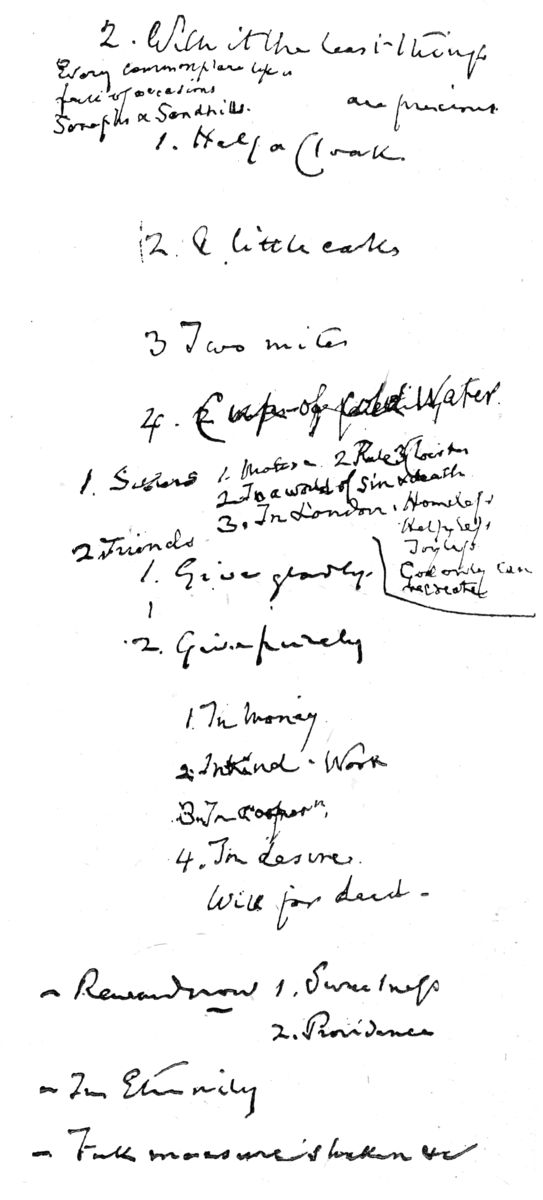 2. With it the least things
are precious
Every commonplace life is
full of occasions
Seraphs & Sandhills.
1. Half a Cloak
2. & little cakes
3 Two mites
4. Cups of cold Water
1. Sisters 1. 2 Rule 3
2 In a world of sin & death
3. In London. Homeless
Helpless
Joyless
God only can
recreate
2 Friends
1. Give gladly.
1
2. Give purely
1. In money
2. In kind - Work
3. In cooper<sup>n</sup>.
4. In desire.
Will for deed -
- Reward now 1. Sweetness
2. Providence
- In Eternity
- Full measure shaken &c